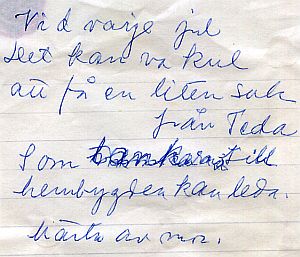 Vid varje jul
det kan va kul
att få en liten sak
från Teda
Som tankarna till
hembygden kan leda.
Märta av mor.